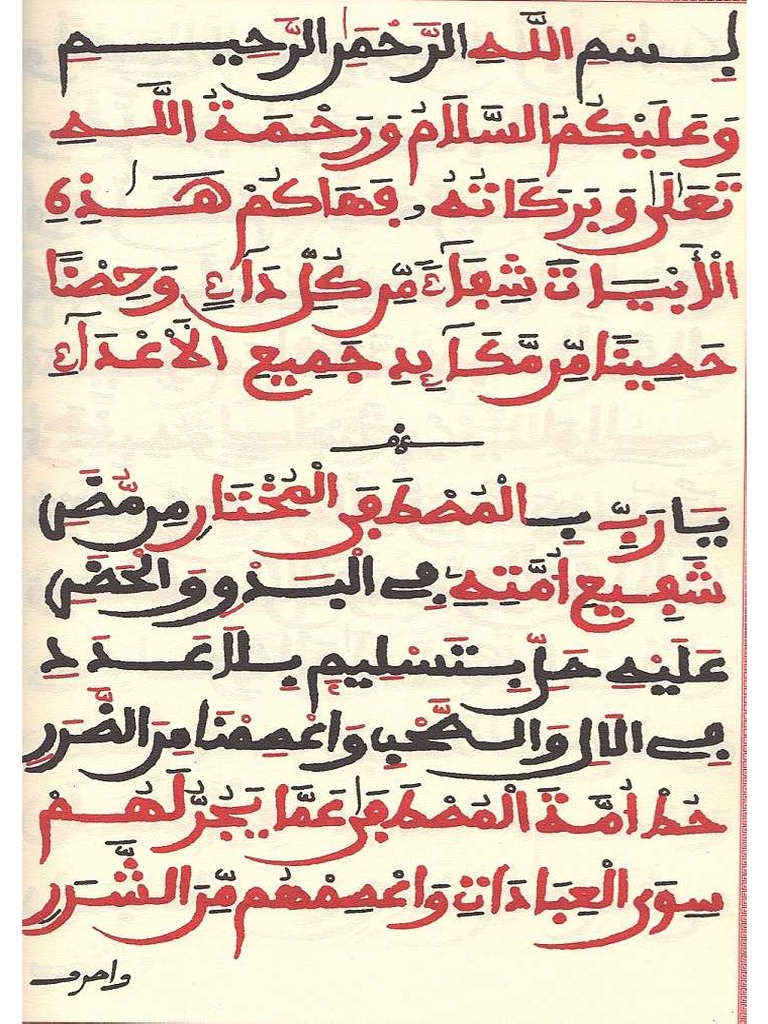 بِسْمِ اللَّهِ الرَّحْمَنِ الرَّحِيمِ
وَعَلَيْكُمُ السَّلَامُ وَرَحْمَةُ اللَّهِ
تَعَالَى وَبَرَكَاتُهُ فَهَاكُمْ هَذِهِ
الْأَبْيَاتَ شِفَاءً مِّن كُلِّ دَاءٍ وَحِصْنًا
حَصِينًا مِّن مَّكَائِدِ جَمِيعِ الْأَعْدَاءِ
يَا رَبِّ بِالْمُصْطَفَى الْمُخْتَارِ مِن مُّضَرِ
شَفِيعِ أُمَّتِهِ فِي الْبَدْوِ وَالْحَضَرِ
عَلَيْهِ صَلِّ بِتَسْلِيمٍ بِلَا عَدَدٍ
فِي الْآلِ وَالصَّحْبِ وَاعْصِمْنَا مِنَ الضَّرَرِ
حُطْ أُمَّةَ الْمُصْطَفَى عَمَّا يَجُرُّ لَهُمْ
سِوَى الْعِبَادَاتِ وَاعْصِمْهُم مِّنَ الشَّرَرِ
واصرف